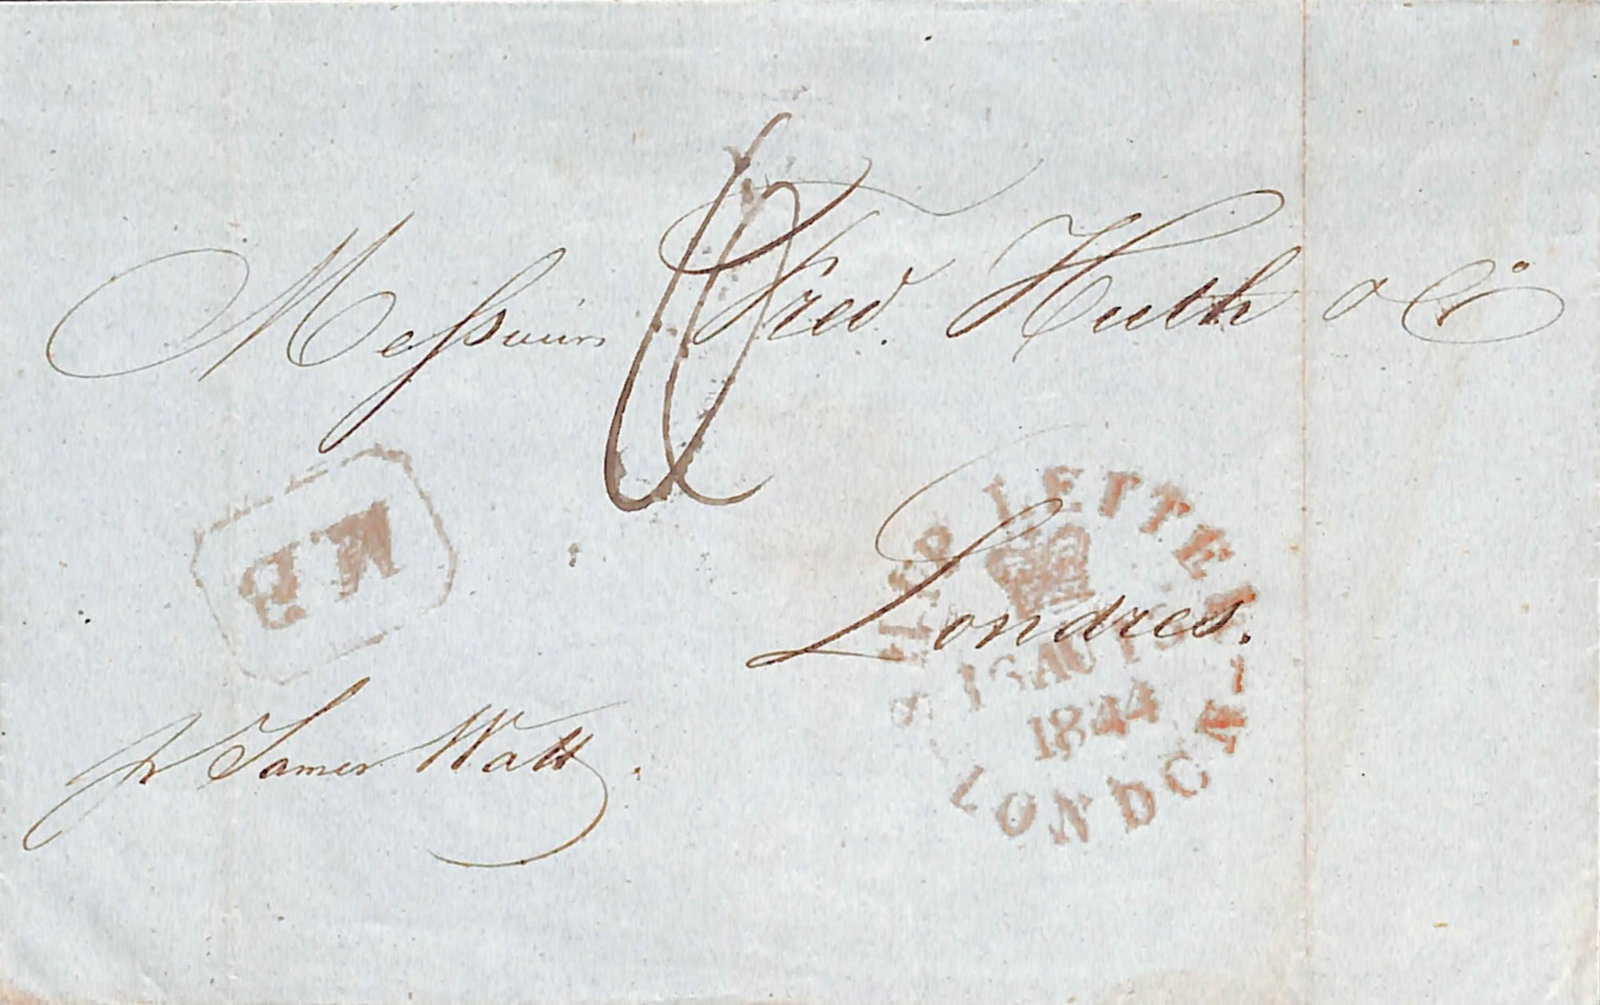 Messieurs Fred. Huth & Co
Londres.
SHIP LETTER
16 AU 16
1844
LONDON
pr James Watt.